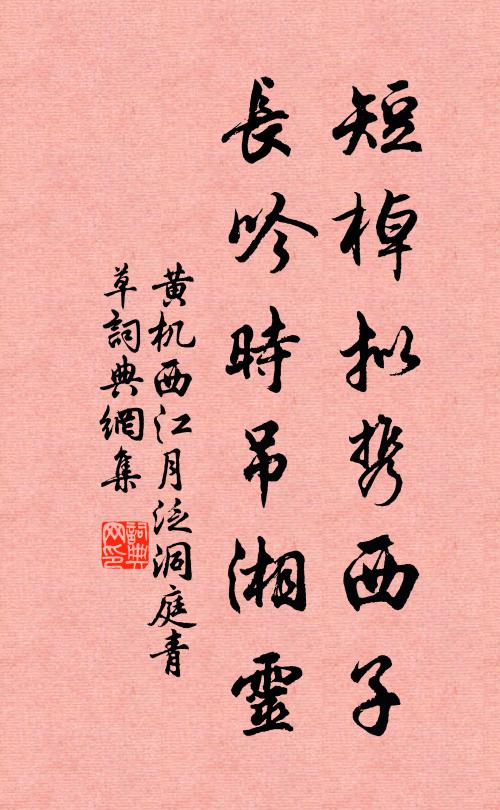 短棹拟携西子
長吟時吊湘靈
黄机西江月泛洞庭青
草詞典網集
詞典網印